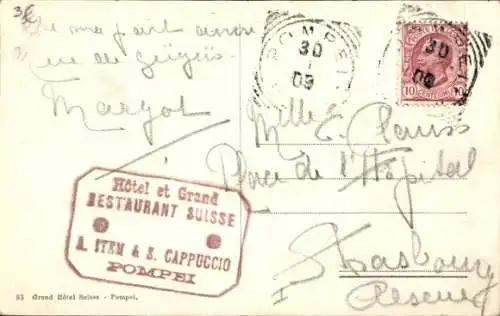 me fait
rue de
Margot
Hôtel et Grand
RESTAURANT SUISSE
A. ITEM & S. CAPPUCCIO
POMPEI
93 Grand Hôtel Suisse - Pompei.
POMPEI
30
1
09
30
09
10
10
Mlle E. Clauss
Place de l'Hôpital
Strasbourg